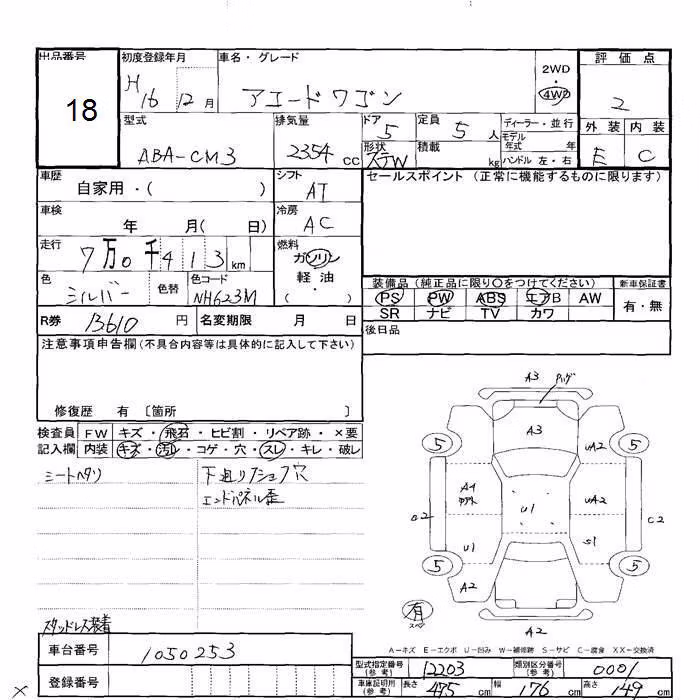 出品番号 初度登録年月 車名・グレード 2WD 評価点
18 H 16 12月 アコードワゴン 4WD 2
型式 排気量 ドア 定員 ディーラー・並行 外装 内装
ABA-CM3 2354 cc 5 5 人 モデル年式 年 E C
形状 積載 ハンドル 左・右
STW kg
車歴 シフト セールスポイント (正常に機能するものに限ります)
自家用・( ) AT
車検 冷房
年 月( 日) AC
走行 燃料
7万0千413 km ガソリン
軽油
色 色替 色コード ・( ) 装備品 (純正品に限り○をつけてください) 新車保証書
シルバー NH623M PS PW ABS エアB AW 有・無
SR ナビ TV カワ
R券 13610 円 名変期限 月 日 後日品
注意事項申告欄(不具合内容等は具体的に記入して下さい)
修復歴 有 [箇所 ]
検査員 FW キズ・飛石・ヒビ割・リペア跡・×要
記入欄 内装 キズ・汚れ・コゲ・穴・スレ・キレ・破レ
シートヘタリ 下廻りフショク穴
エンドパネル歪
A3
A3
5 UA2 5
A4 UA2
U1
C2
U1 S1
5 A2 5
有
A2
スタッドレス装着
A-キズ E-エクボ U-凹み W-補修跡 S-サビ C-腐食 XX-交換済
車台番号 1050253
型式指定番号(参考) 12203 類別区分番号(参考) 0001
登録番号
車庫証明用(参考) 長さ 475 cm 幅 176 cm 高さ 149 cm